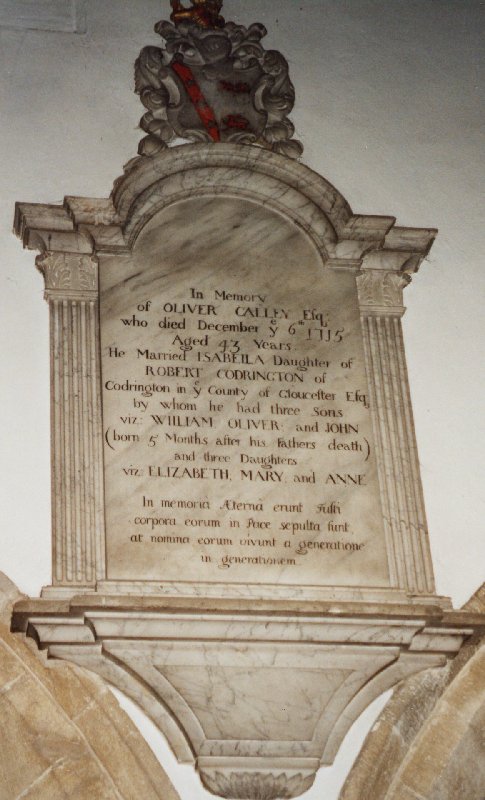 In Memory
of OLIVER CALLEY Esqr
who died December ye 6th 1715
Aged 43 Years.
He Married ISABELLA Daughter of
ROBERT CODRINGTON of
Codrington in ye County of Gloucester Esqr
by whom he had three Sons
viz: WILLIAM OLIVER and JOHN
(born 5 Months after his Fathers death)
and three Daughters
viz: ELIZABETH, MARY, and ANNE
In memoria Æterna erunt Justi
corpora eorum in Pace sepulta sunt,
at nomina eorum vivunt a generatione
in generationem